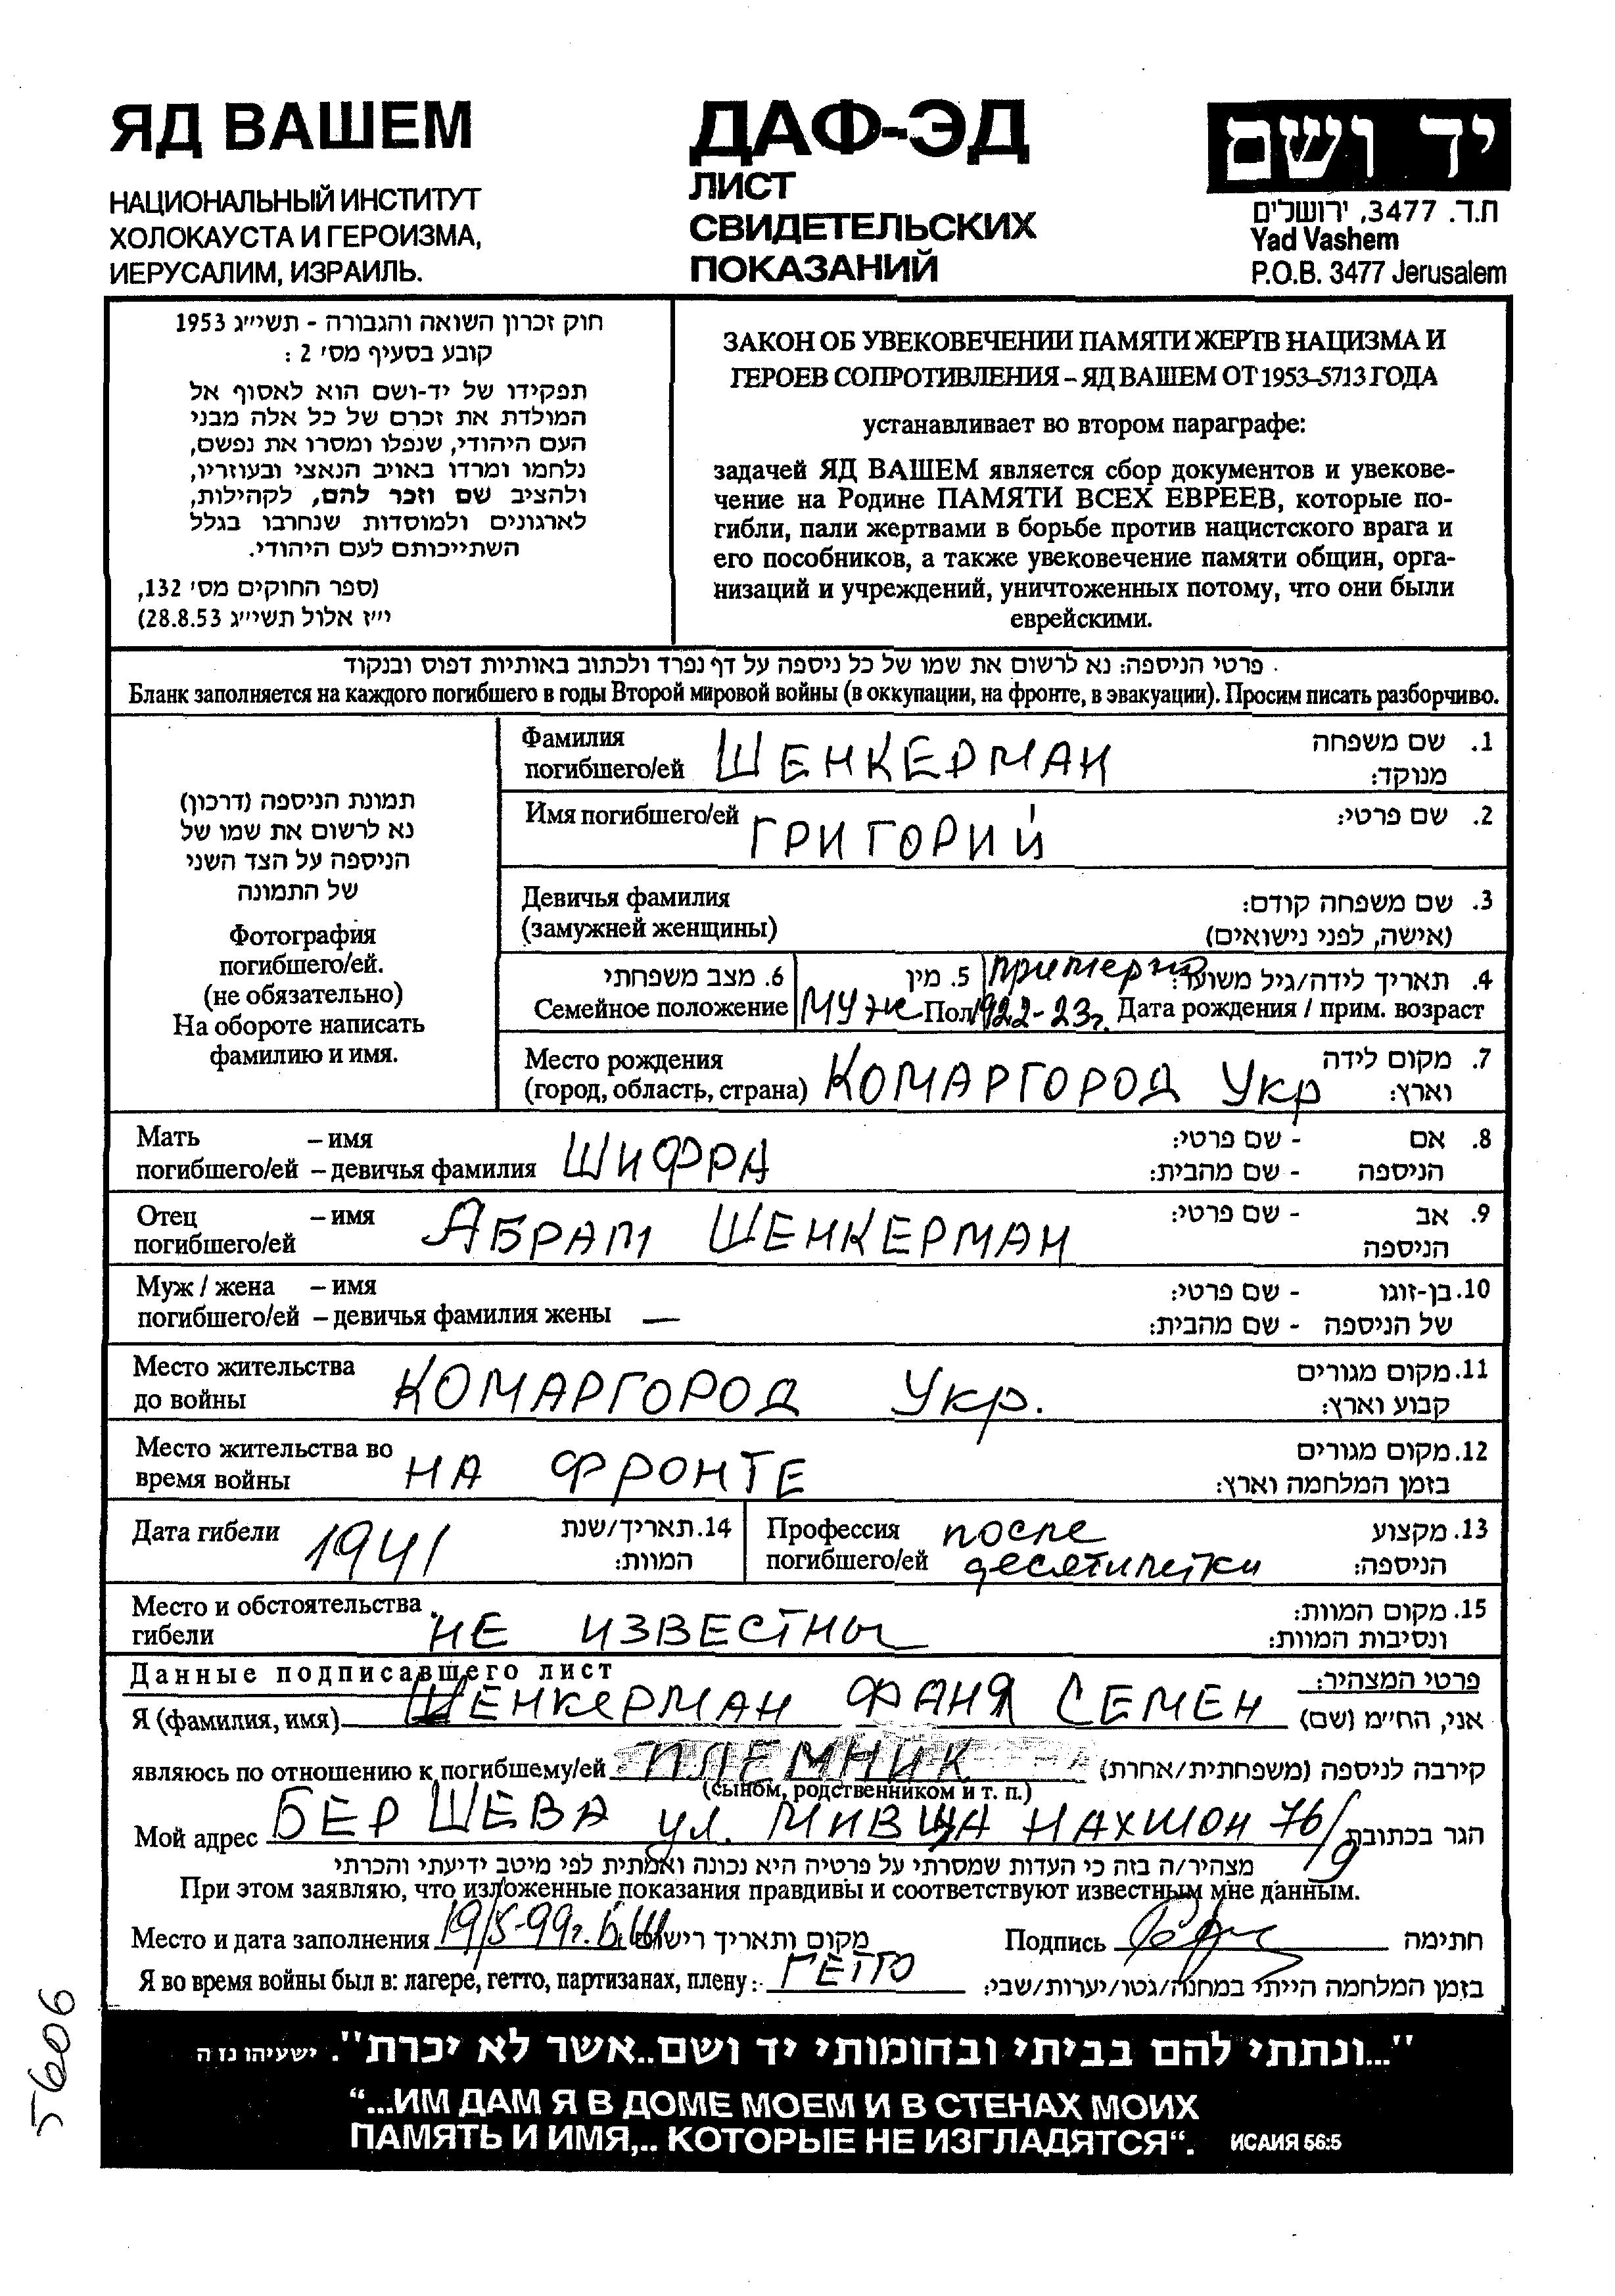 ЯД ВАШЕМ
НАЦИОНАЛЬНЫЙ ИНСТИТУТ
ХОЛОКАУСТА И ГЕРОИЗМА,
ИЕРУСАЛИМ, ИЗРАИЛЬ.
ДАФ-ЭД
ЛИСТ
СВИДЕТЕЛЬСКИХ
ПОКАЗАНИЙ
יד ושם
ת.ד. 3477, ירושלים
Yad Vashem
P.O.B. 3477 Jerusalem
חוק זכרון השואה והגבורה - תשי״ג 1953
קובע בסעיף מס׳ 2 :
תפקידו של יד-ושם הוא לאסוף אל
המולדת את זכרם של כל אלה מבני
העם היהודי, שנפלו ומסרו את נפשם,
נלחמו ומרדו באויב הנאצי ובעוזריו,
ולהציב שם וזכר להם, לקהילות,
לארגונים ולמוסדות שנחרבו בגלל
השתייכותם לעם היהודי.
(ספר החוקים מס׳ 132,
י״ז אלול תשי״ג 28.8.53)
ЗАКОН ОБ УВЕКОВЕЧЕНИИ ПАМЯТИ ЖЕРТВ НАЦИЗМА И
ГЕРОЕВ СОПРОТИВЛЕНИЯ – ЯД ВАШЕМ ОТ 1953–5713 ГОДА
устанавливает во втором параграфе:
задачей ЯД ВАШЕМ является сбор документов и увекове-
чение на Родине ПАМЯТИ ВСЕХ ЕВРЕЕВ, которые по-
гибли, пали жертвами в борьбе против нацистского врага и
его пособников, а также увековечение памяти общин, орга-
низаций и учреждений, уничтоженных потому, что они были
еврейскими.
פרטי הניספה: נא לרשום את שמו של כל ניספה על דף נפרד ולכתוב באותיות דפוס ובנקוד
Бланк заполняется на каждого погибшего в годы Второй мировой войны (в оккупации, на фронте, в эвакуации). Просим писать разборчиво.
תמונת הניספה (דרכון)
נא לרשום את שמו של
הניספה על הצד השני
של התמונה
Фотография
погибшего/ей.
(не обязательно)
На обороте написать
фамилию и имя.
Фамилия 1. שם משפחה
погибшего/ей ШЕНКЕРМАН מנוקד:
Имя погибшего/ей ГРИГОРИЙ 2. שם פרטי:
Девичья фамилия 3. שם משפחה קודם:
(замужней женщины) (אישה, לפני נישואים)
6. מצב משפחתי 5. מין примерно 4. תאריך לידה/גיל משוער:
Семейное положение МУЖ Пол 1922-23г. Дата рождения / прим. возраст
Место рождения 7. מקום לידה
(город, область, страна) КОМАРГОРОД Укр וארץ:
Мать – имя - שם פרטי: 8. אם
погибшего/ей – девичья фамилия ШИФРА - שם מהבית: הניספה
Отец – имя - שם פרטי: 9. אב
погибшего/ей АБРАМ ШЕНКЕРМАН הניספה
Муж / жена – имя - שם פרטי: 10. בן-זוגו
погибшего/ей – девичья фамилия жены — - שם מהבית: של הניספה
Место жительства 11. מקום מגורים
до войны КОМАРГОРОД Укр. קבוע וארץ:
Место жительства во 12. מקום מגורים
время войны НА ФРОНТЕ בזמן המלחמה וארץ:
Дата гибели 1941 14. תאריך/שנת
המוות:
Профессия после 13. מקצוע
погибшего/ей десятилетки הניספה:
Место и обстоятельства 15. מקום המוות:
гибели НЕ ИЗВЕСТНЫ ונסיבות המוות:
Данные подписавшего лист פרטי המצהיר:
Я (фамилия, имя) ШЕНКЕРМАН ФАНЯ СЕМЕН אני, הח״מ (שם)
являюсь по отношению к погибшему/ей ПЛЕМНИК קירבה לניספה (משפחתית/אחרת)
(сыном, родственником и т. п.)
Мой адрес БЕР ШЕВА ул. МИВЦА НАХШОН 76/9 הגר בכתובת
מצהיר/ה בזה כי העדות שמסרתי על פרטיה היא נכונה ואמתית לפי מיטב ידיעתי והכרתי
При этом заявляю, что изложенные показания правдивы и соответствуют известным мне данным.
Место и дата заполнения 19/5-99г. Б.Ш מקום ותאריך רישום Подпись חתימה
Я во время войны был в: лагере, гетто, партизанах, плену: ГЕТТО בזמן המלחמה הייתי במחנה/גטו/יערות/שבי:
"...ונתתי להם בביתי ובחומותי יד ושם..אשר לא יכרת". ישעיהו נז ה
“...ИМ ДАМ Я В ДОМЕ МОЕМ И В СТЕНАХ МОИХ
ПАМЯТЬ И ИМЯ,.. КОТОРЫЕ НЕ ИЗГЛАДЯТСЯ“. ИСАИЯ 56:5
5606